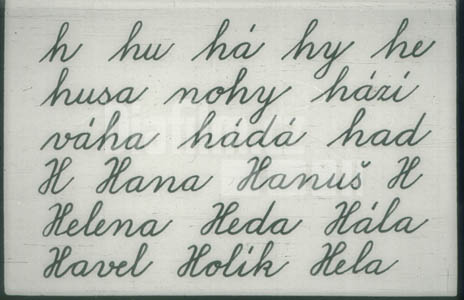 h hu há hy he
husa nohy hází
váha hádá had
H Hana Hanuš H
Helena Heda Hála
Havel Holík Hela